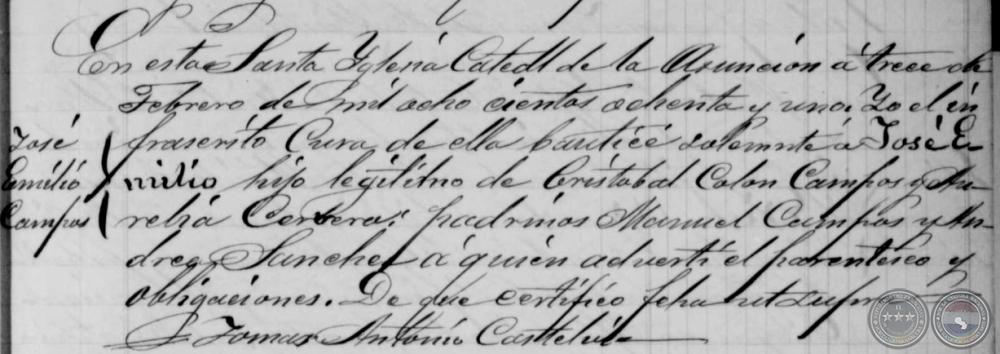 En esta Santa Yglesia Catedl de la Asuncion á trece de
Febrero de mil ocho cientos ochenta y uno: Yo el in
José
frascrito Cura de ella bauticé solemnte á José E-
Emilio
milio hijo legitimo de Cristobal Colon Campos y Au
Campos
relia Cervera: padrinos Manuel Campos y An-
drea Sanchez á quien advertí el parentesco y
obligaciones. De que certifico fcha ut supra
Tomas Antonio